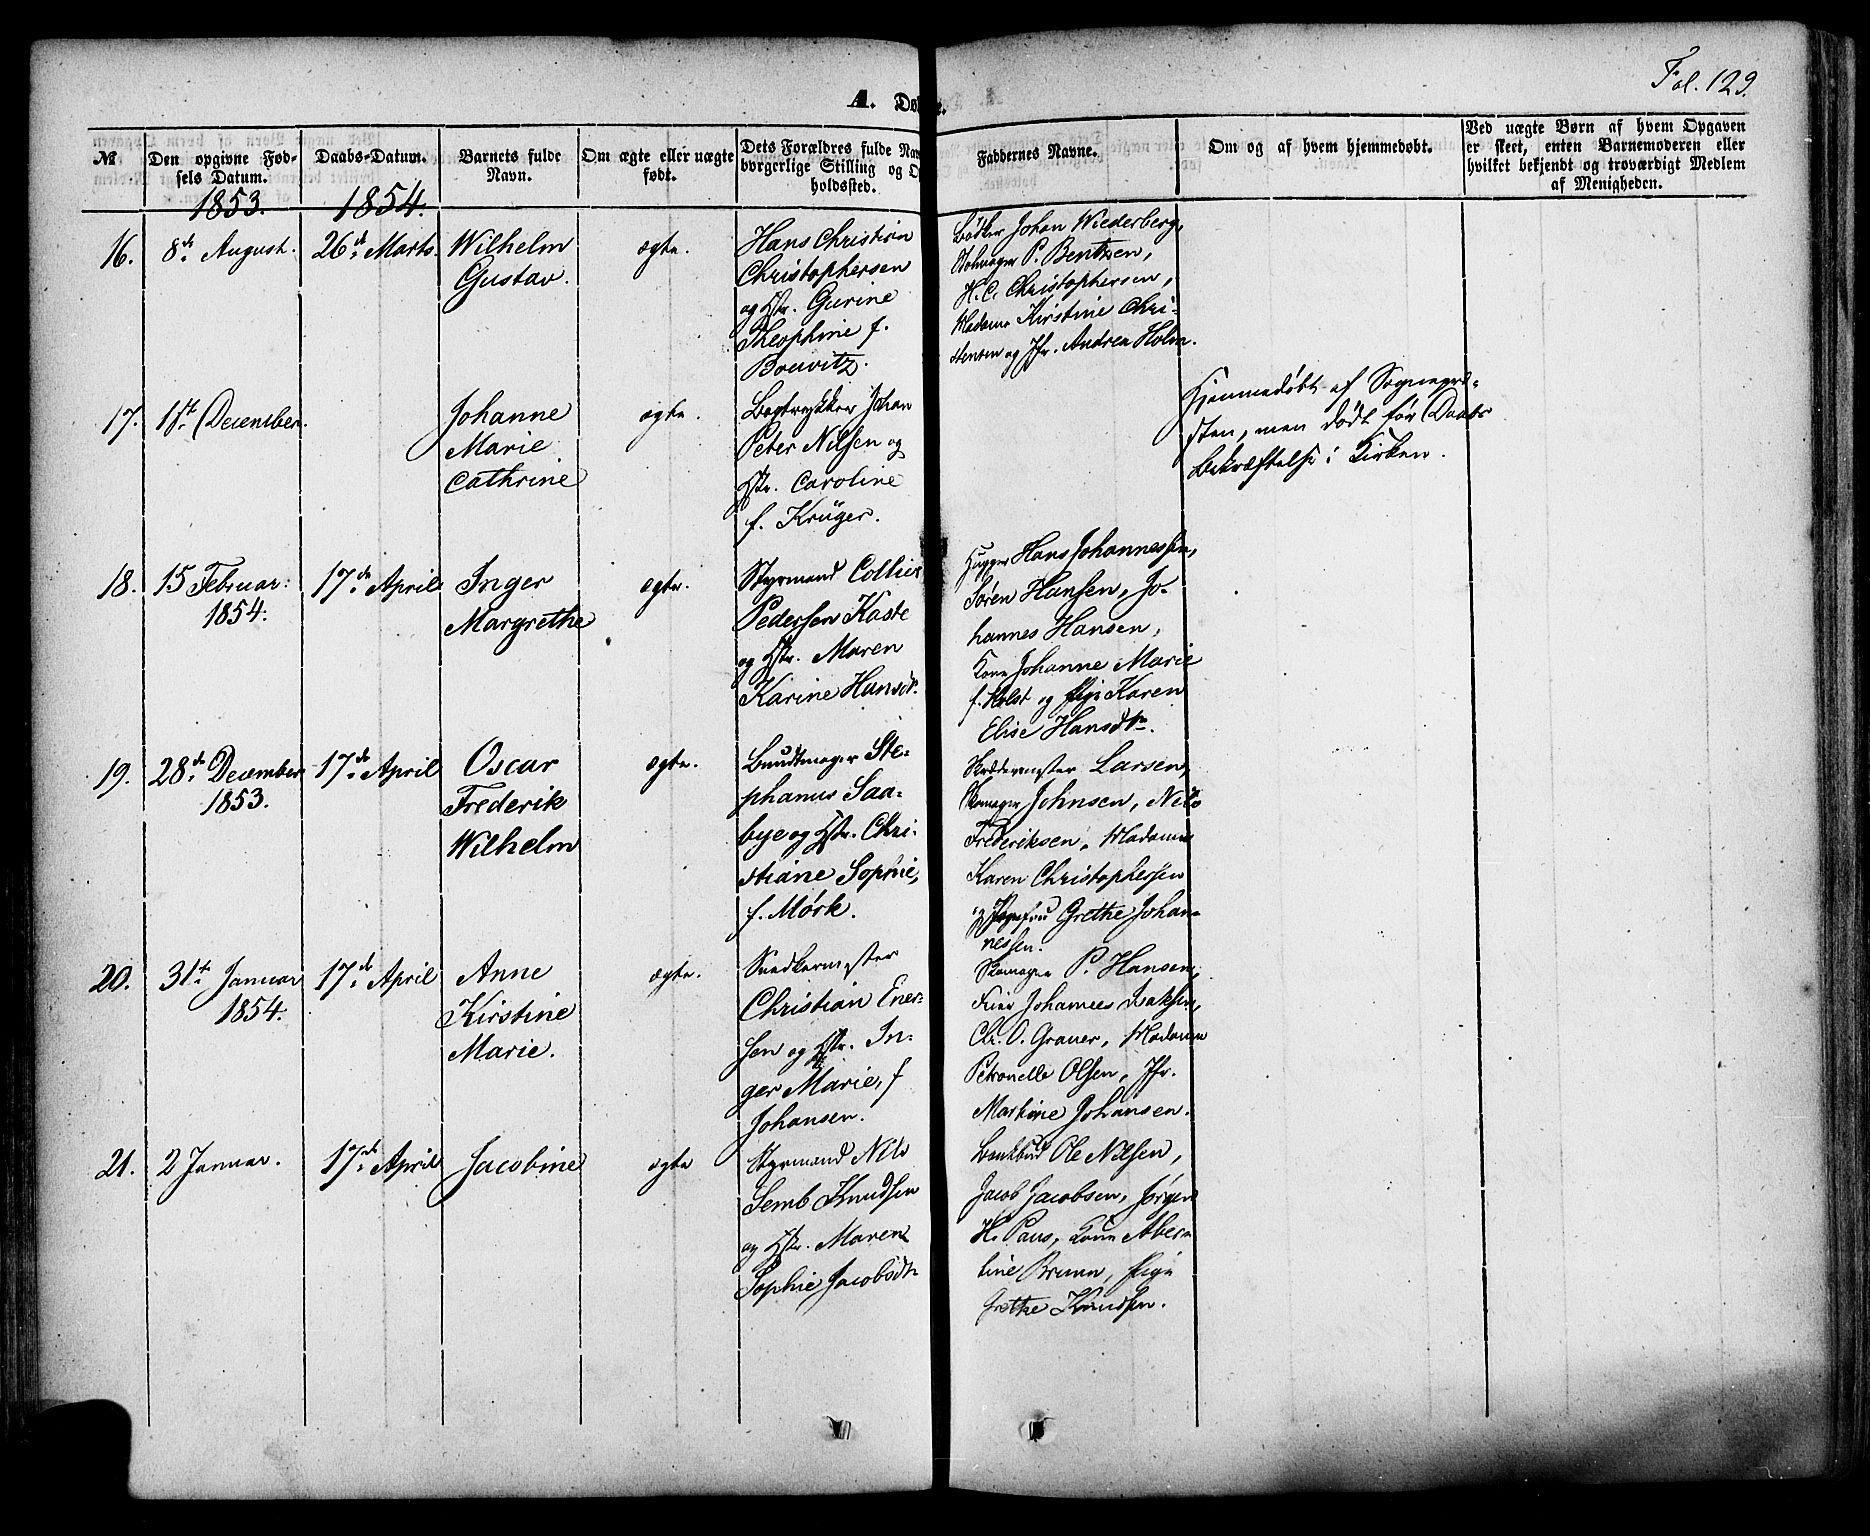 Fol. 129.
A. Døbte.
№
Den opgivne Fød-
sels Datum.
1853.
Daabs-Datum.
1854.
Barnets fulde
Navn.
Om ægte eller uægte
født.
Dets Forældres fulde Nav
borgerlige Stilling og O
holdssted.
Faddernes Navne.
Om og af hvem hjemmedøbt.
Ved uægte Børn af hvem Opgaven
er skeet, enten Barnemoderen eller
hvilket bekjendt og troværdigt Medlem
af Menigheden.
16.
8de August.
26de Marts.
Wilhelm
Gustav.
ægte.
Hans Christian
Christophersen
og Hstr. Gurine
Theophine f.
Bouvitz.
Bødker Johan Wiederberg,
Stolmager P. Bentzen,
H. C. Christophersen,
Madame Kirstine Chri-
stensen og Jfr. Andrea Holm.
17.
1ste December.
Johanne
Marie
Cathrine
ægte.
Bogtrykker Johan
Peter Nilsen og
Hstr. Caroline
f. Krüger.
Hjemmedøbt af Sognepre-
sten, men død før Daabs
Bekræftelse i Kirken.
18.
15 Februar:
1854.
17de April
Inger
Margrethe
ægte.
Styrmand Collier
Pedersen Kaste
og Hstr. Maren
Karine Hansdr.
Hugger Hans Johannessen,
Søren Hansen, Jo-
hannes Hansen,
Kone Johanne Marie
f. Holst og Pige Karen
Elise Hansdtr.
19.
28de December
1853.
17de April
Oscar
Frederik
Wilhelm
ægte.
Bundtmager Ste-
phanus Saa-
bye og Hstr. Chri-
stiane Sophie,
f. Mørk.
Skræddermester Larsen,
Skomager Johnsen, Nils
Frederiksen, Madame
Karen Christophersen
og Jomfru Grethe Johan-
nessen.
20.
31te Januar
1854.
17de April
Anne
Kirstine
Marie.
ægte.
Snedkermester
Christian Ener-
sen og Hstr. In-
ger Marie, f
Johansen.
Skomager P. Hansen,
Feier Johannes Isaksen,
Chr. O. Grauer, Madame
Petronelle Olsen, Jfr.
Martine Johansen.
21.
2 Januar.
17de April
Jacobine
ægte
Styrmand Nils
Semb Knudsen
og Hstr. Maren
Sophie Jacobsdtr
Bankbud Ole Nilsen,
Jacob Jacobsen, Jørgen
H. Paus, Kone Alber-
tine Bruun, Pige
Grethe Knudsen.